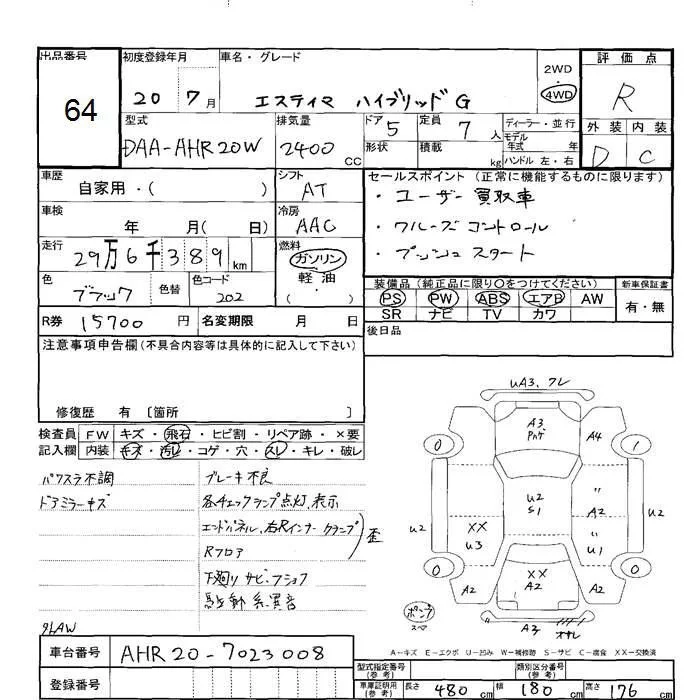 出品番号
64
初度登録年月
20 7月
車名・グレード
エスティマ ハイブリッド G
2WD
・
4WD
評価点
R
外装 内装
D C
型式
DAA-AHR20W
排気量
2400 CC
ドア 5
形状
定員 7 人
積載 kg
ディーラー・並行
モデル年式 年
ハンドル 左・右
車歴
自家用・( )
シフト
AT
セールスポイント (正常に機能するものに限ります)
・ユーザー買取車
・クルーズコントロール
・プッシュスタート
車検
年 月( 日)
冷房
AAC
走行
29万6千389km
燃料
ガソリン
軽油
( ・ )
色
ブラック
色替
色コード
202
装備品 (純正品に限り○をつけてください)
PS PW ABS エアB AW
SR ナビ TV カワ
新車保証書
有・無
R券 15700 円
名変期限 月 日
後日品
注意事項申告欄(不具合内容等は具体的に記入して下さい)
修復歴 有 〔箇所 〕
検査員記入欄
FW キズ・飛石・ヒビ割・リペア跡・×要
内装 キズ・汚レ・コゲ・穴・スレ・キレ・破レ
パワスラ不調
ドアミラーキズ
ブレーキ不良
各4ェックランプ点灯、表示
エンドパネル、右Rインナー クランプ
Rフロア
歪
下廻り サビ、フショク
駆動系異音
タLAW
UA3、ワレ
A3
A4
0
1
U2
U2
S1
〃
A2
U2
XX
U3
〃
U1
XX
A2
0
0
A2
A2
A3
パンク
スペア
A-キズ E-エクボ U-凹み W-補修跡 S-サビ C-腐食 XX-交換済
車台番号 AHR20-7023008
登録番号
型式指定番号(参考)
類別区分番号(参考)
車庫証明用(参考) 長さ 480 cm 幅 180 cm 高さ 176 cm